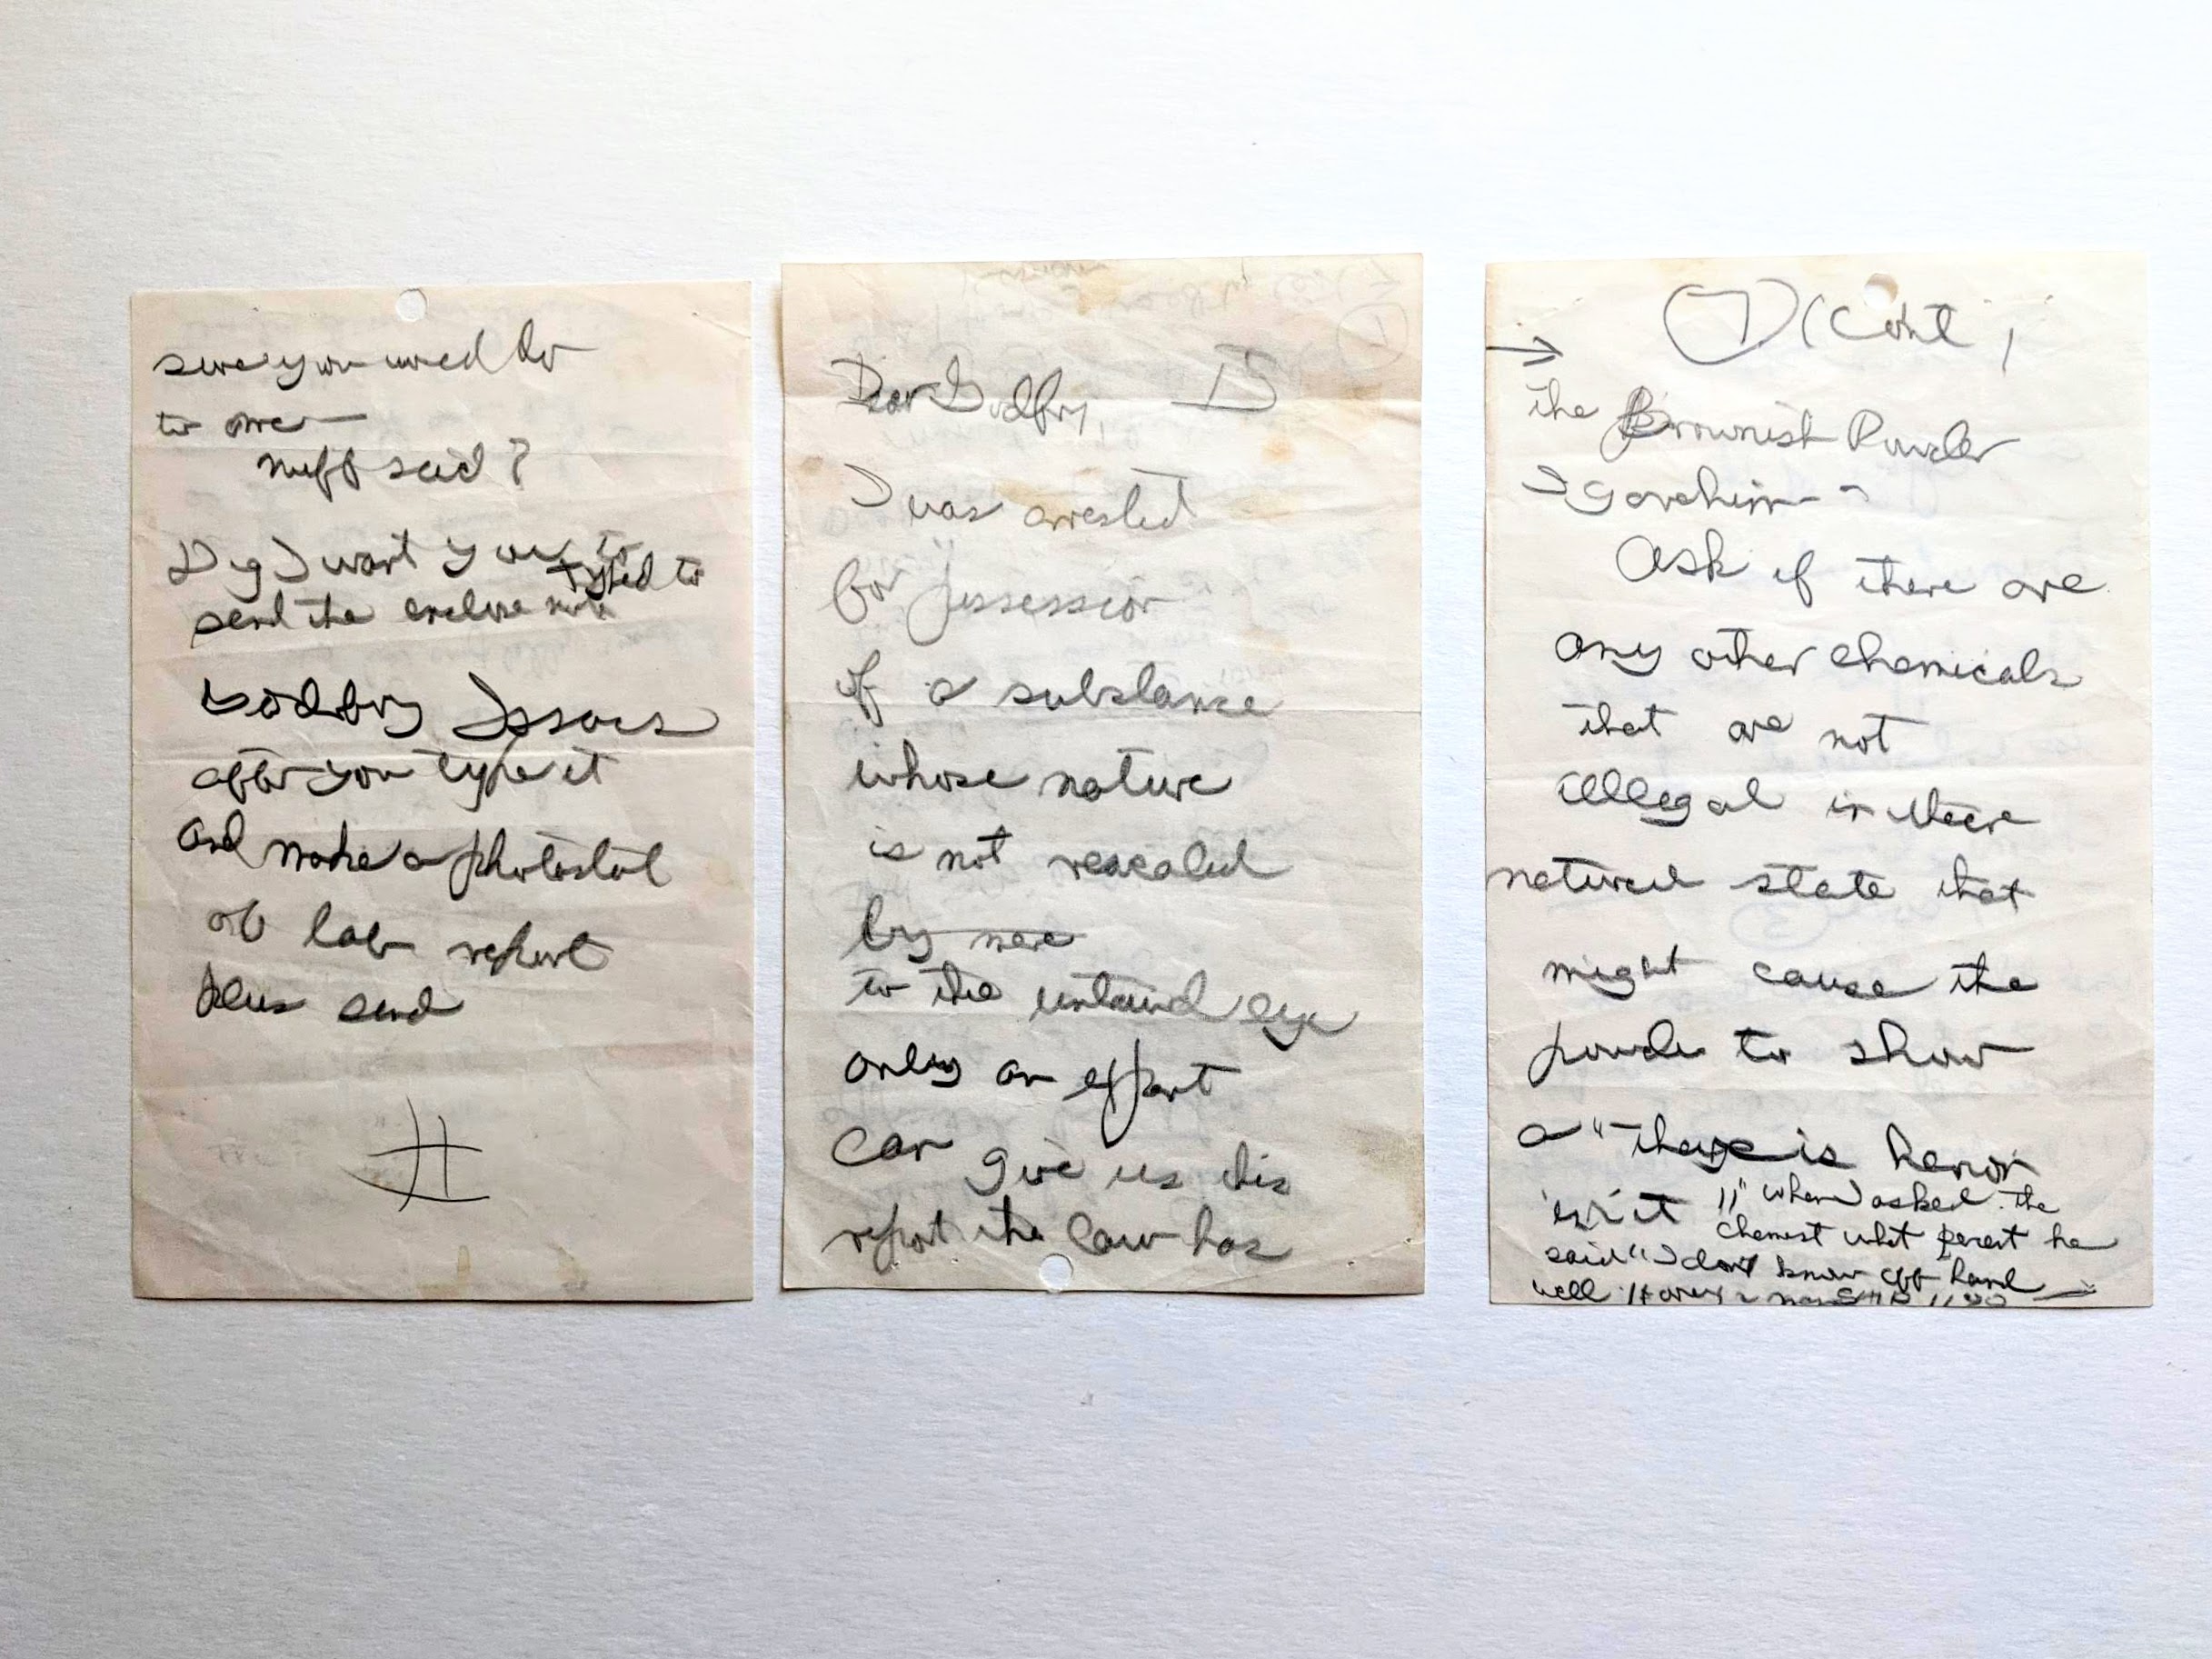 sure you used to
to me
nuff said?
Dig I want you to
send the enclose note typed to
Godfry Issacs
after you type it
and make a photostat
of lab report
plus send
#
Dear Godfry,
I was arrested
for "possession
of a substance
whose nature
is not revealed
by mere
to the untaind eye
only an expert
can give us his
report the law has
7 (Cont)
→
the Brownish Powder
I gave him -
Ask if there are
any other chemicals
that are not
illegal in their
natural state that
might cause the
powder to show
a "There is heroin
in it !!" when I asked the
chemist what percent he
said "I don't know off hand
well